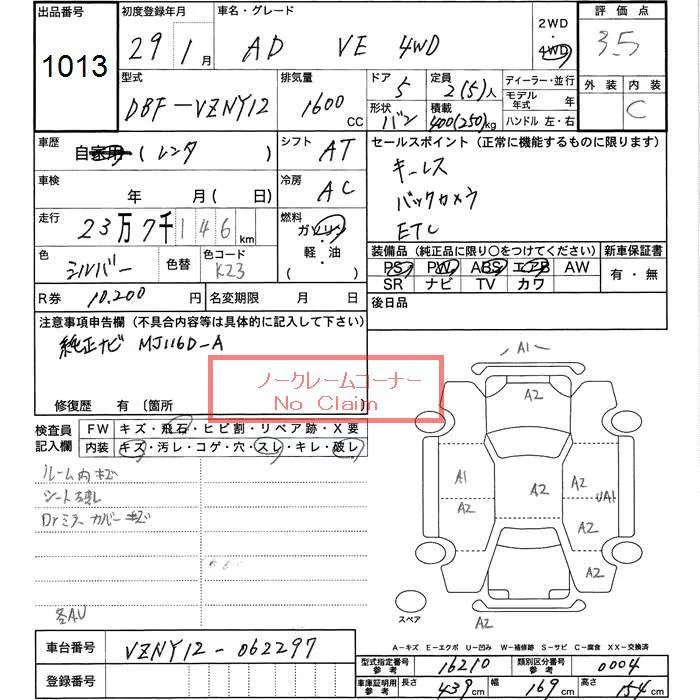 出品番号 初度登録年月 車名・グレード 2WD 評価点
1013 29年1月 AD VE 4WD 4WD 3.5
型式 排気量 ドア 5 定員 2(5)人 ディーラー・並行 外装 内装
DBF-VZNY12 1600 CC 形状 バン 積載 400(250)kg モデル年式 年 C
ハンドル 左・右
車歴 自家用 (レンタ) シフト AT セールスポイント (正常に機能するものに限ります)
車検 年 月(日) 冷房 AC キーレス
バックカメラ
走行 23万7千146km 燃料 ガソリン・軽・油 ( ) ETC
色 シルバー 色替 色コード K23 装備品 (純正品に限り○をつけてください) 新車保証書
PS PW ABS エアB AW 有・無
R券 10,200円 名変期限 月 日 SR ナビ TV カワ
注意事項申告欄 (不具合内容等は具体的に記入して下さい) 後日品
純正ナビ MJ116D-A
ノークレームコーナー
No Claim
修復歴 有 (箇所 )
検査員 FW キズ・飛石・ヒビ割・リペア跡・X要
記入欄 内装 キズ・汚レ・コゲ・穴・スレ・キレ・破レ
ルーム内キズ
シート破れ
Drミラーカバーキズ
各AU
A1
A2
A1 A2 A2 UA1
A2 A2
A2
スペア A2
A-キズ E-エクボ U-凹み W-補修跡 S-サビ C-腐食 XX-交換済
車台番号 VZNY12-062297
型式指定番号 参考 16210 類別区分番号 参考 0004
登録番号 車庫証明用 参考 長さ 439cm 幅 169cm 高さ 154cm